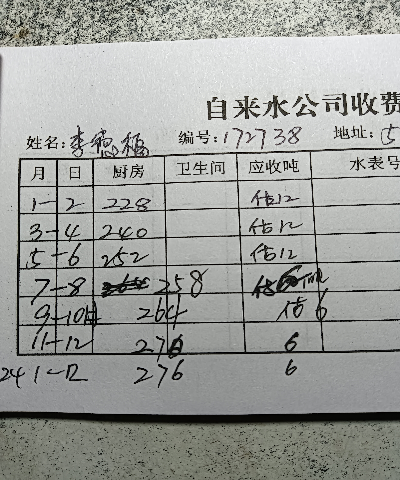 自来水公司收费
姓名:李德福 编号:172738 地址:5
月 日 厨房 卫生间 应收吨 水表号
1-2 228 估12
3-4 240 估12
5-6 252 估12
7-8 258 估6
9-10 264 估6
11-12 276 6
24 1-12 276 6